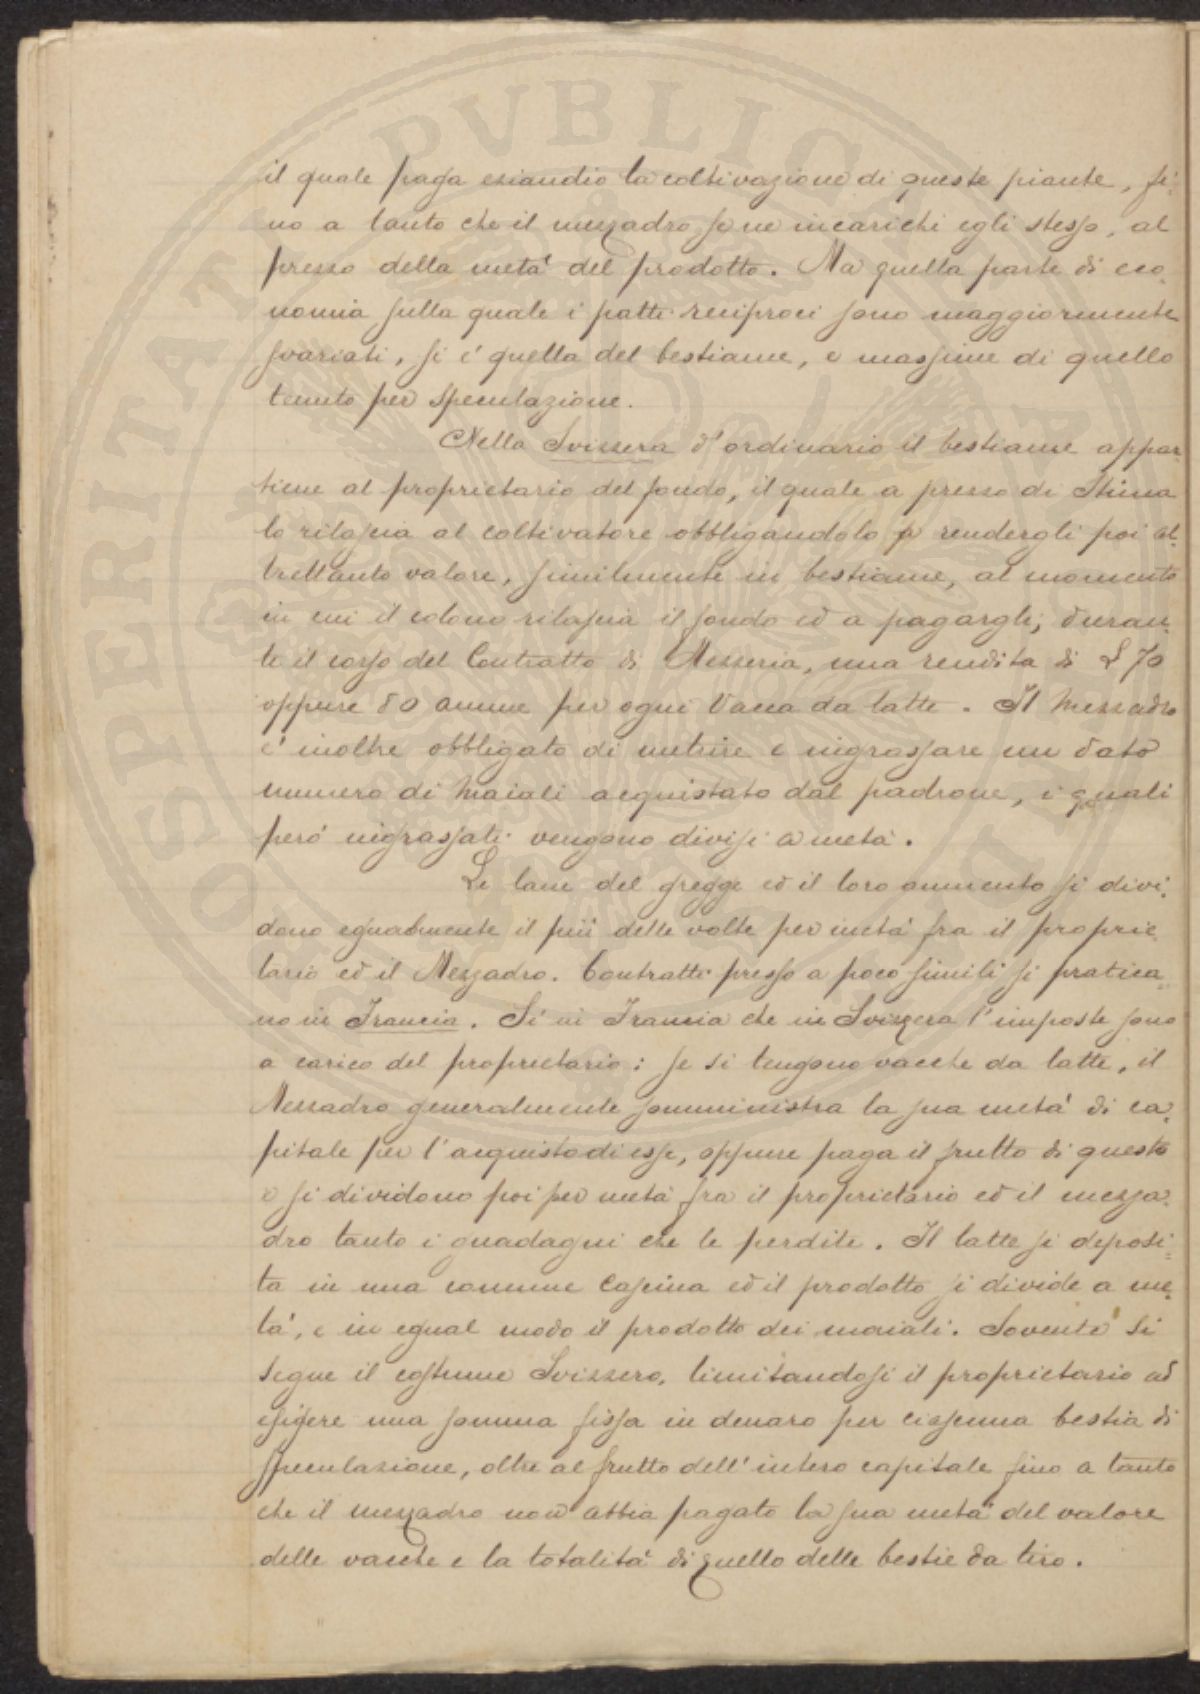 il quale paga eziandio la coltivazione di queste piante, fi-
no a tanto che il mezzadro se ne incarichi egli stesso, al
prezzo della metà del prodotto. Ma quella parte di eco-
nomia sulla quale i patti reciproci sono maggiormente
svariati, si è quella del bestiame, e massime di quello
tenuto per speculazione.
Nella Svizzera d'ordinario il bestiame appar-
tiene al proprietario del fondo, il quale a prezzo di Stima
lo rilascia al coltivatore obbligandolo a rendergli poi al-
trettanto valore, similmente in bestiame, al momento
in cui il colono rilascia il fondo ed a pagargli, duran-
te il corso del Contratto di Mezzeria, una rendita di L 70
oppure 80 annue per ogni Vacca da latte. Il Mezzadro
è inoltre obbligato di nutrire e ingrassare un dato
numero di Maiali acquistato dal padrone, i quali
però ingrassati vengono divisi a metà.
Le lane del gregge ed il loro aumento si divi-
dono egualmente il più delle volte per metà fra il proprie-
tario ed il Mezzadro. Contratti presso a poco simili si pratica-
no in Francia. Sì in Francia che in Svizzera l'imposte sono
a carico del proprietario: se si tengono vacche da latte, il
Mezzadro generalmente somministra la sua metà di ca-
pitale per l'acquisto di esse, oppure paga il frutto di questo
e si dividono poi per metà fra il proprietario ed il mezza-
dro tanto i guadagni che le perdite. Il latte si deposi-
ta in una comune Cascina ed il prodotto si divide a me-
tà, e in egual modo il prodotto dei maiali. Sovente si
segue il costume Svizzero, limitandosi il proprietario ad
esigere una somma fissa in denaro per ciascuna bestia di
speculazione, oltre al frutto dell'intero capitale fino a tanto
che il mezzadro non abbia pagato la sua metà del valore
delle vacche e la totalità di quello delle bestie da tiro.